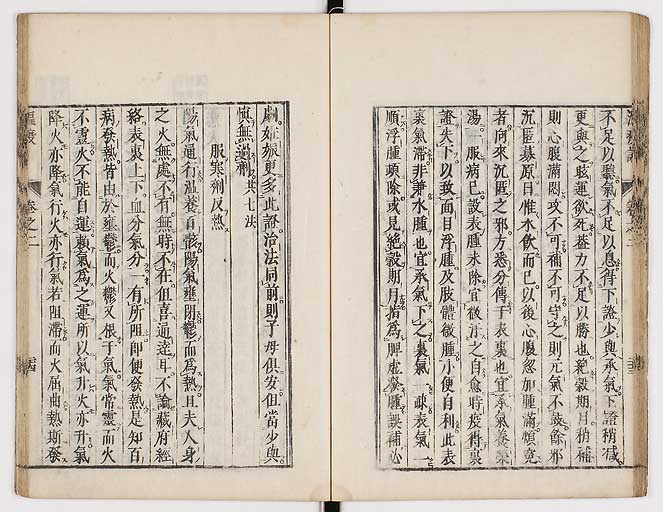 不足以聽氣不足以息得下證少與承氣下證稍減
更與之眩運欲死蓋力不足以勝也絕穀期月稍補
則心腹滿悶攻不可補不可守之則元氣不鼓餘邪
沉匿募原日惟水飲而已以後心腹忽加腫滿煩寃
者向來沉匿之邪方悉分傳于表裏也宜承氣養榮
湯一服病已設表腫未除宜微汗之自愈時疫得裏
證失下以致面目浮腫及肢體微腫小便自利此表
裏氣滯非兼水腫也宜承氣下之裏氣一疎表氣
順浮腫頓除或見絕穀期月指為脾虛發腫誤補必
劇妊娠更多此證治法同前則子母俱安但當少與
慎無過劑共七法
服寒劑反熱
陽氣通行溫養百骸陽氣壅閉鬱而為熱且夫人身
之火無處不有無時不在但喜通達耳不論臟府經
絡表裏上下血分氣分一有所阻即便發熱是知百
病發熱皆由於壅鬱而火鬱又根于氣氣常靈而火
不靈火不能自運賴氣為之運所以氣升火亦升氣
降火亦降氣行火亦行氣若阻滯而火屈曲熱斯發
卷之二